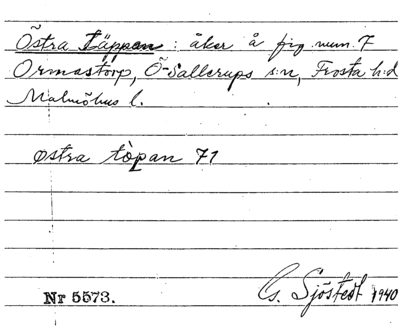 Östra Täppan : åker å fig. num. 7
Ormastorp, Ö-Sallerups s:n, Frosta h:d
Malmöhus l.
østra tòpan 71
Nr 5573.
G. Sjöstedt 1940